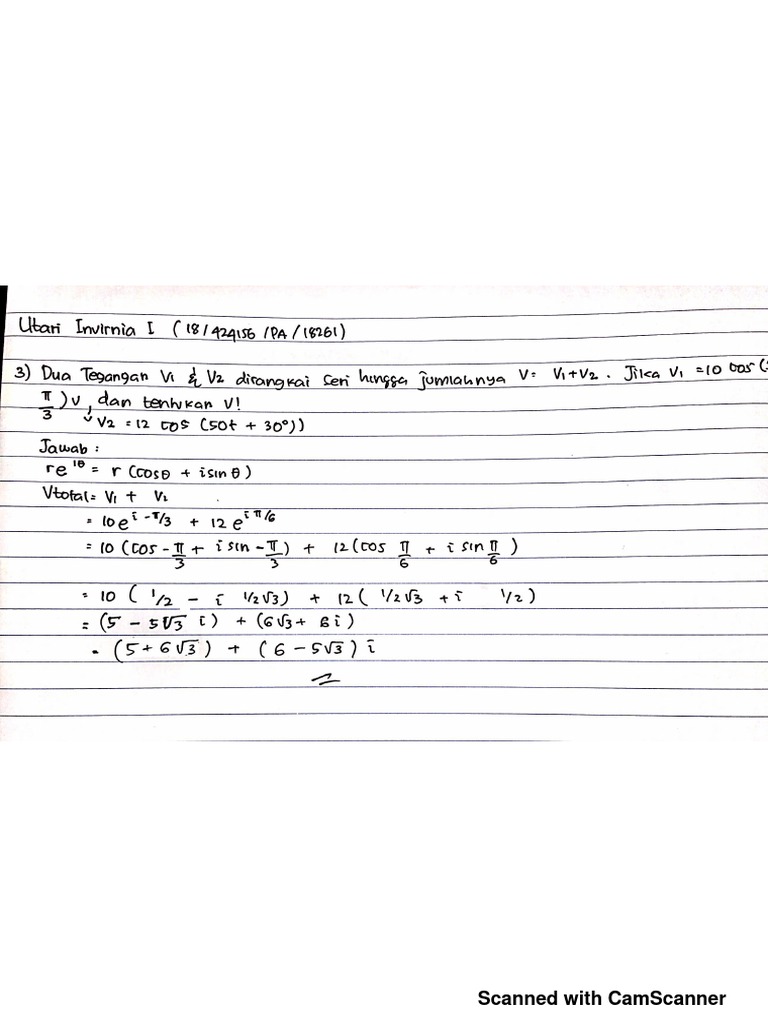 Utari Invirnia I (18/424156/PA/18261)
3) Dua Tegangan V1 & V2 dirangkai seri hingga jumlahnya V= V1+V2. Jika V1 =10 cos (
π/3 ) v, dan tentukan V!
V2 = 12 cos (50t + 30°))
Jawab :
re^iθ = r (cosθ + i sin θ)
Vtotal = V1 + V2
= 10 e^i -π/3 + 12 e^i π/6
= 10 (cos -π/3 + i sin -π/3) + 12 (cos π/6 + i sin π/6)
= 10 ( 1/2 - i 1/2√3) + 12 ( 1/2√3 + i 1/2)
= (5 - 5√3 i) + (6√3 + 6i)
= (5 + 6√3) + (6 - 5√3) i
Scanned with CamScanner